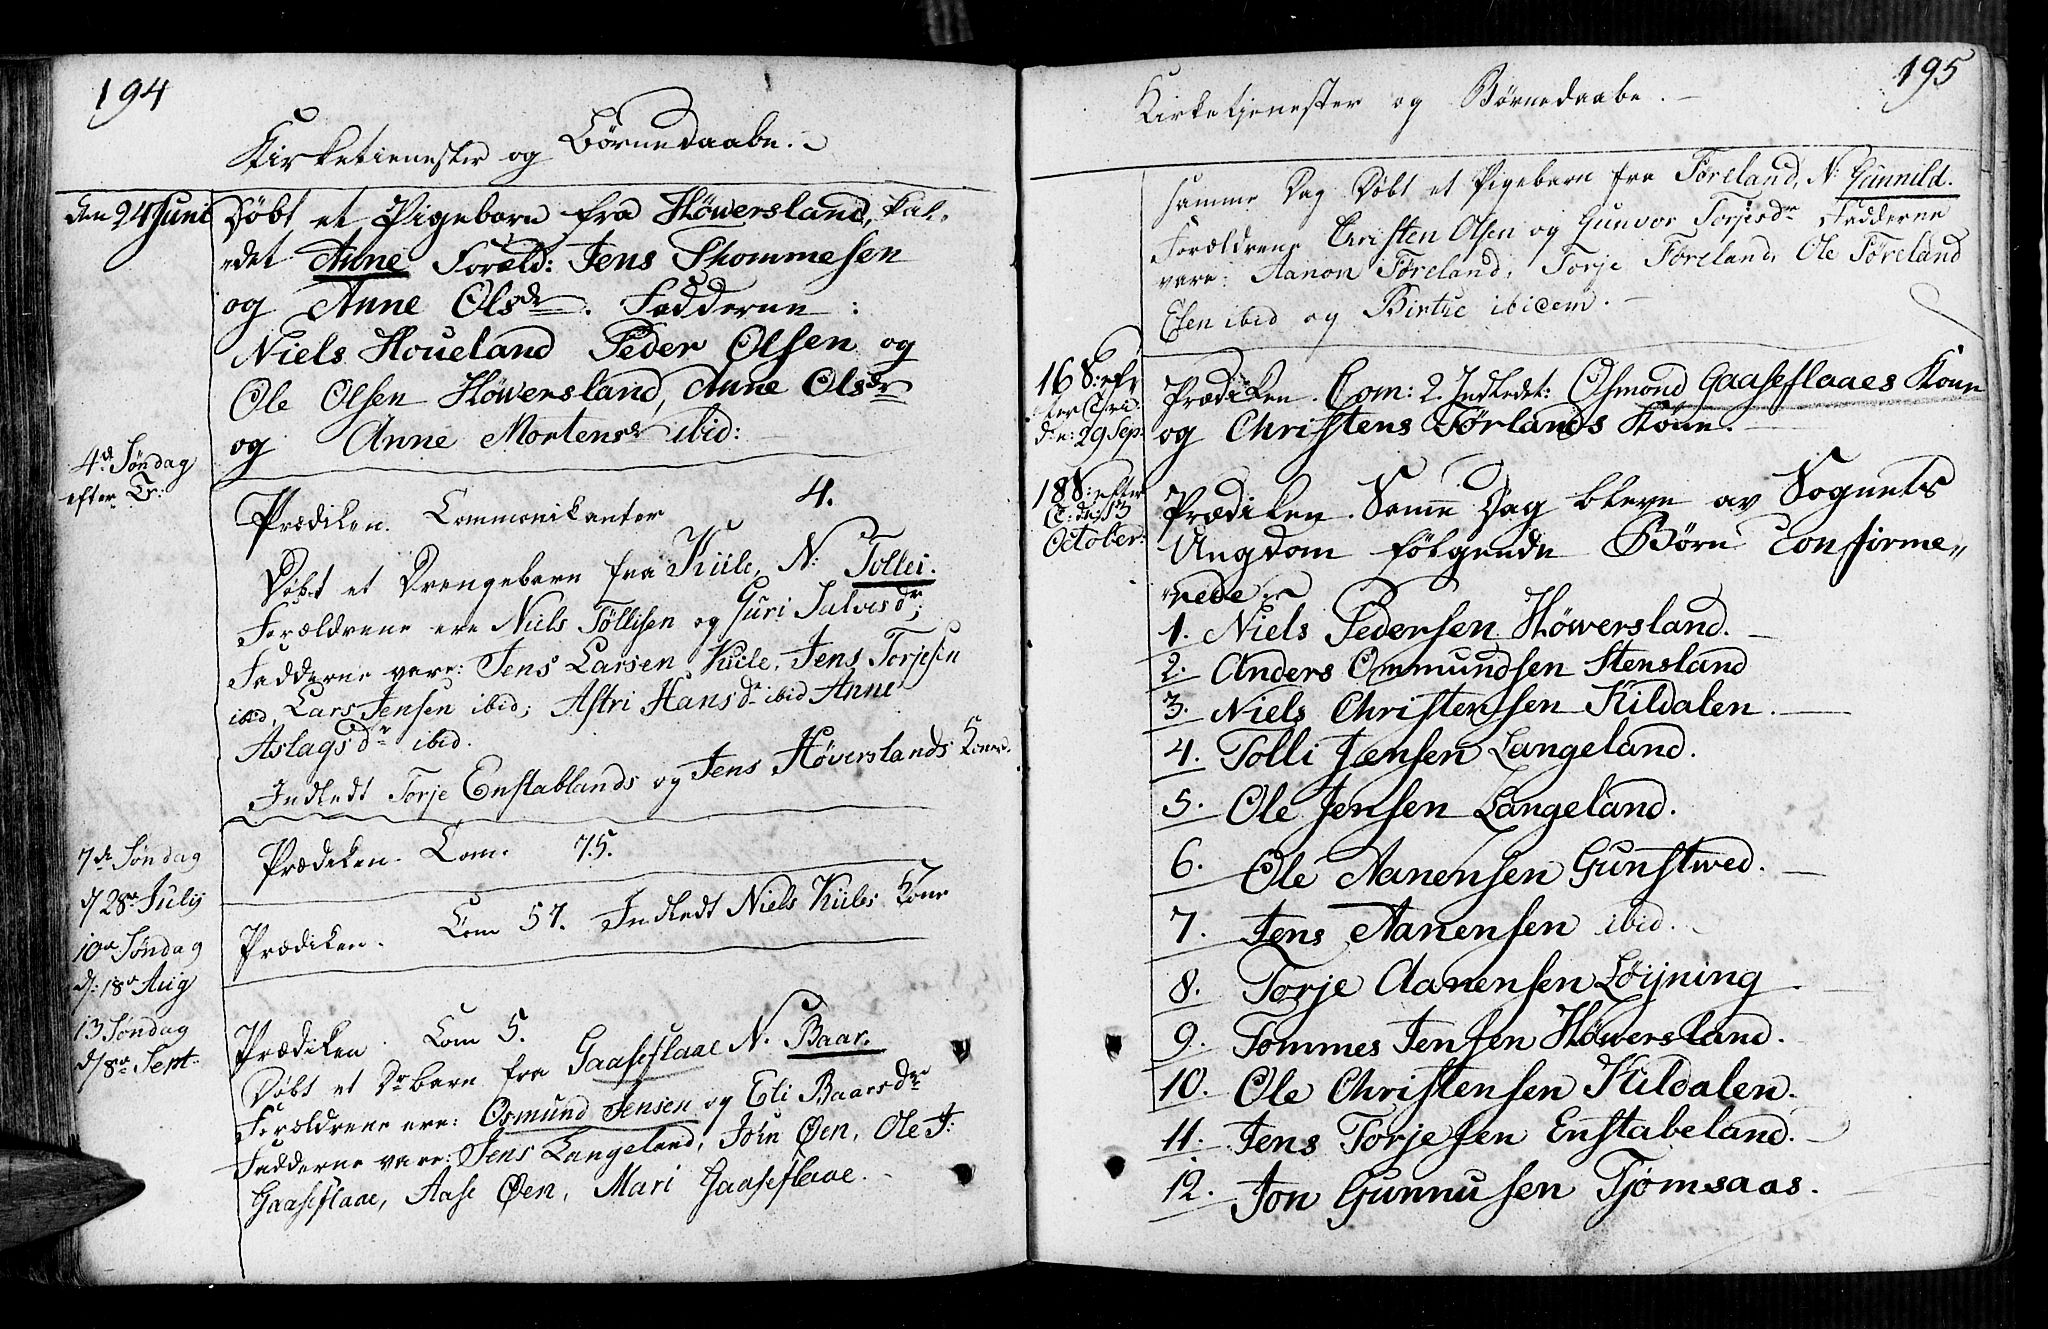 194
Kirketienester og Børnedaabe.
den 24 Juni Døbt et Pigebarn fra Höwersland, kal-
det Anne Foræld: Jens Thommesen
og Anne Olsdr. Fadderne:
Niels Houeland Peder Olsen og
Ole Olsen Höwersland, Anne Olsdr
og Anne Mortensdr ibid:
4de Søndag
efter Tr:
Prædiken. Commonikanter 4.
Døbt et Drengebarn fra Kiile, N: Tollei.
Forældrene ere Niels Töllisen og Guri Salvesdr;
Fadderne vare: Jens Larsen Kiile, Jens Torjesen
ibid, Lars Jensen ibid; Astri Hansdr ibid Anne
Aslagsdr ibid.
Indledt Torje Enstablands og Jens Höverslands Koner.
7de Søndag
d/ 28de Julij
Prædiken. Com. 75.
10de Søndag
d/: 18de Aug
Prædiken. Com 57. Indledt Niels Kiiles Kone
13 Søndag
d/ 8de Sept:
Prædiken. Com 5.
Døbt et Dr barn fra Gaaseflaae N. Baar.
Forældrene ere: Osmund Jensen og Eli Baarsdr
Fadderne vare: Jens Langeland, John Øen, Ole J:
Gaaseflaae, Aase Øen, Mari Gaaseflaae.
195
Kirketjenester og Børnedaabe.
Samme Dag Døbt et Pigebarn fra Føreland, N: Gunnild.
Forældrene Christen Olsen og Gunvor Torjesdr Fadderne
vare: Aanon Føreland, Torje Føreland, Ole Føreland
Elen ibid og Birthe ibidem.
16 S: ef-
ter Tri:
d: 29 Sep:
Prædiken. Com: 2. Indledet: Osmond Gaaseflaaes Kone
og Christens Förlands Kone.
18 S: efter
T: d: 13
October:
Prædiken. Samme Dag bleve av Sognets
Ungdom følgende Børn Confirme-
rede
1. Niels Pedersen Höwersland.
2. Anders Ommundsen Stensland
3. Niels Christensen Kildalen.
4. Tolli Jensen Langeland.
5. Ole Jensen Langeland.
6. Ole Aanensen Gunstwed.
7. Jens Aanensen ibid.
8. Torje Aanensen Löijning
9. Tommes Jensen Höwersland.
10. Ole Christensen Kildalen.
11. Jens Torjesen Enstabeland.
12. Jon Gunnusen Tjömsaas.